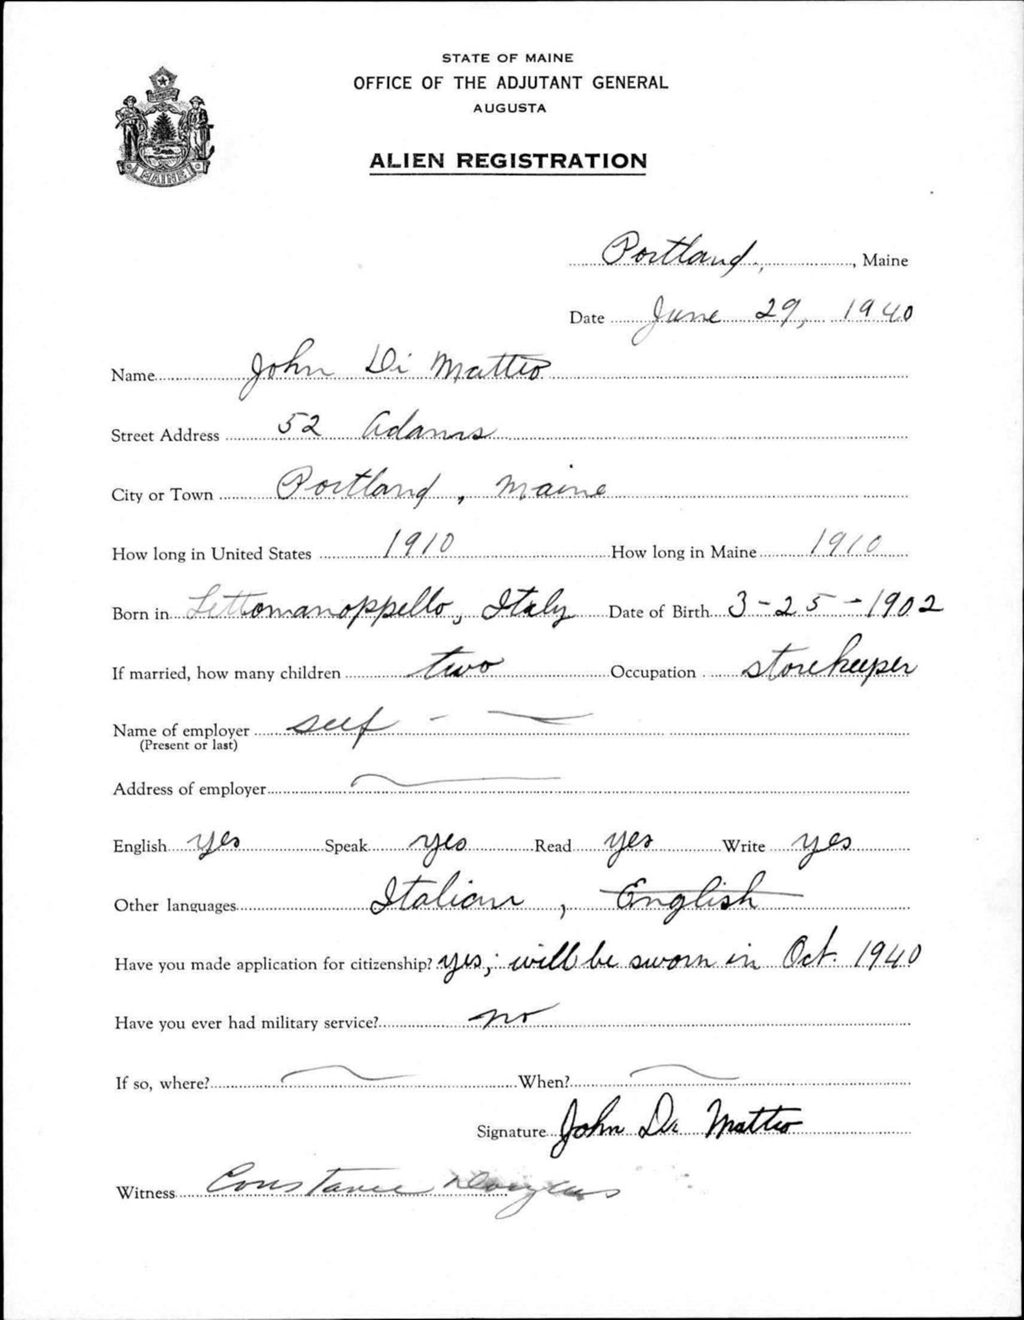 STATE OF MAINE
OFFICE OF THE ADJUTANT GENERAL
AUGUSTA
ALIEN REGISTRATION
MAINE
Portland, , Maine
Date June 29, 1940
Name John Di Matteo
Street Address 52 Adams
City or Town Portland, Maine
How long in United States 1910 How long in Maine 1910
Born in Lettomanoppello, Italy Date of Birth 3-25-1902
If married, how many children two Occupation storekeeper
Name of employer self
(Present or last)
Address of employer
English yes Speak yes Read yes Write yes
Other languages Italian, English
Have you made application for citizenship? yes, will be sworn in Oct. 1940
Have you ever had military service? no
If so, where? When?
Signature John Di Matteo
Witness Constance Douglass